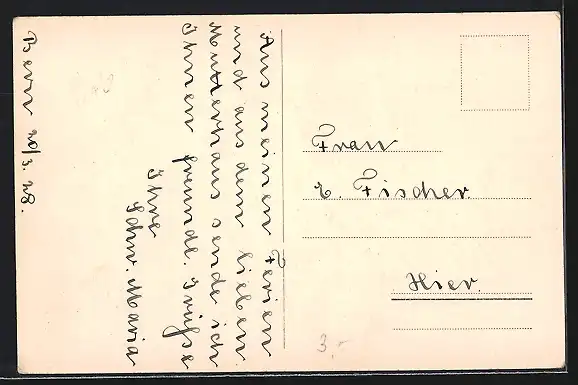 Bern 20/3. 28.
Aus meinen Ferien
und aus dem lieben
Mutterhaus sende ich
Ihnen freundl. Grüsse
Ihre
Schw. Maria
Frau
E. Fischer.
Hier.
3.-